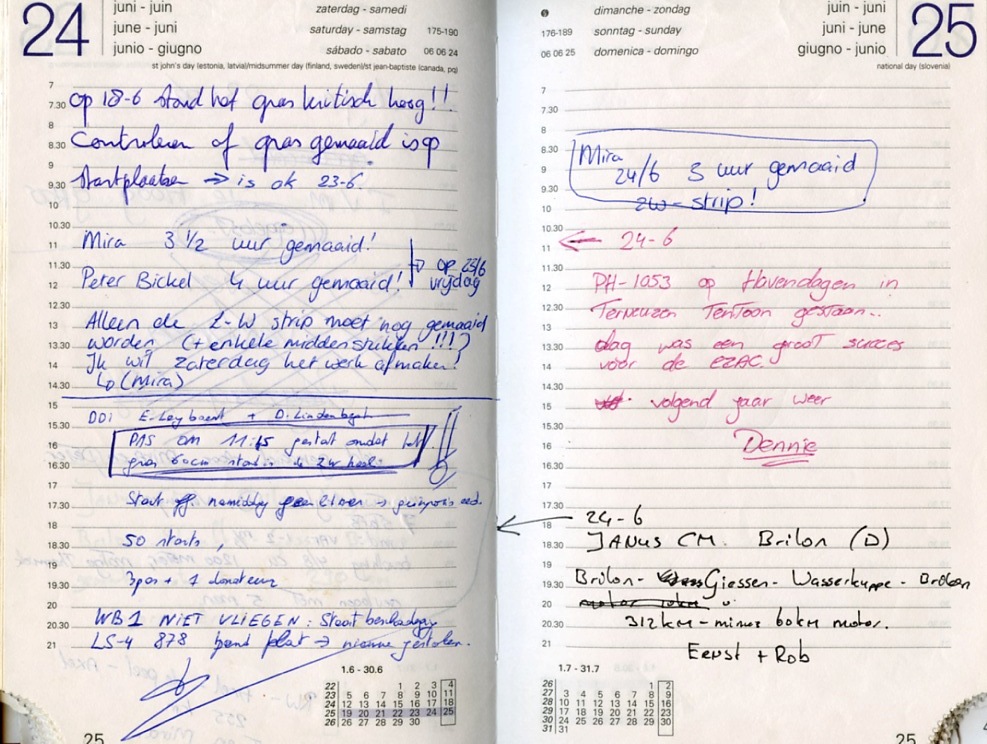 24
juni - juin
june - juni
junio - giugno
zaterdag - samedi
saturday - samstag 175-190
sábado - sabato 06 06 24
st john's day (estonia, latvia)/midsummer day (finland, sweden)/st jean-baptiste (canada, pq)
7
7.30 op 18-6 stond het gras kritisch hoog!!
8
8.30 Controleren of gras gemaaid is op
9
9.30 startplaatsen → is ok 23-6.
10
10.30
11 Mira 3 1/2 uur gemaaid!
11.30 op 23/6
12 Peter Bickel 4 uur gemaaid! vrijdag
12.30
13 Alleen de Z-W strip moet nog gemaaid
13.30 worden (+ enkele middenstukken !!!)
14 Ik wil zaterdag het werk afmaken!
14.30 (Mira)
15 DDI E. Leybaert + D.
15.30
16 PAS om 11:15 gestart omdat het
16.30 gras 60cm stond in de ZW hoek
17
17.30 Start namiddag
18
18.30 50 starts,
19
19.30 3 pax + 1 donateur
20
20.30 WB1 NIET VLIEGEN: Staart beschadigd
21 LS-4 878 band plat → nieuwe gestoken.
1.6 - 30.6
22 1 2 3 4
23 5 6 7 8 9 10 11
24 12 13 14 15 16 17 18
25 19 20 21 22 23 24 25
26 26 27 28 29 30
25
dimanche - zondag
176-189 sonntag - sunday
06 06 25 domenica - domingo
juin - juni
juni - june
giugno - junio
25
national day (slovenia)
7
7.30
8
8.30 Mira
9 24/6 3 uur gemaaid
9.30 zw- strip!
10
10.30
11 ← 24-6
11.30
12 PH-1053 op Havendagen in
12.30 Terneuzen Tentoon gestaan..
13
13.30 dag was een groot succes
14 voor de EZAC.
14.30
15 volgend jaar weer
15.30
16 Dennie
16.30
17
17.30
18 24-6
18.30 JANUS CM. Brilon (D)
19
19.30 Brilon - Giessen - Wasserkuppe - Brilon
20
20.30 312 km - minus 60km motor.
21 Ernst + Rob
1.7 - 31.7
26 1 2
27 3 4 5 6 7 8 9
28 10 11 12 13 14 15 16
29 17 18 19 20 21 22 23
30 24 25 26 27 28 29 30
31 31